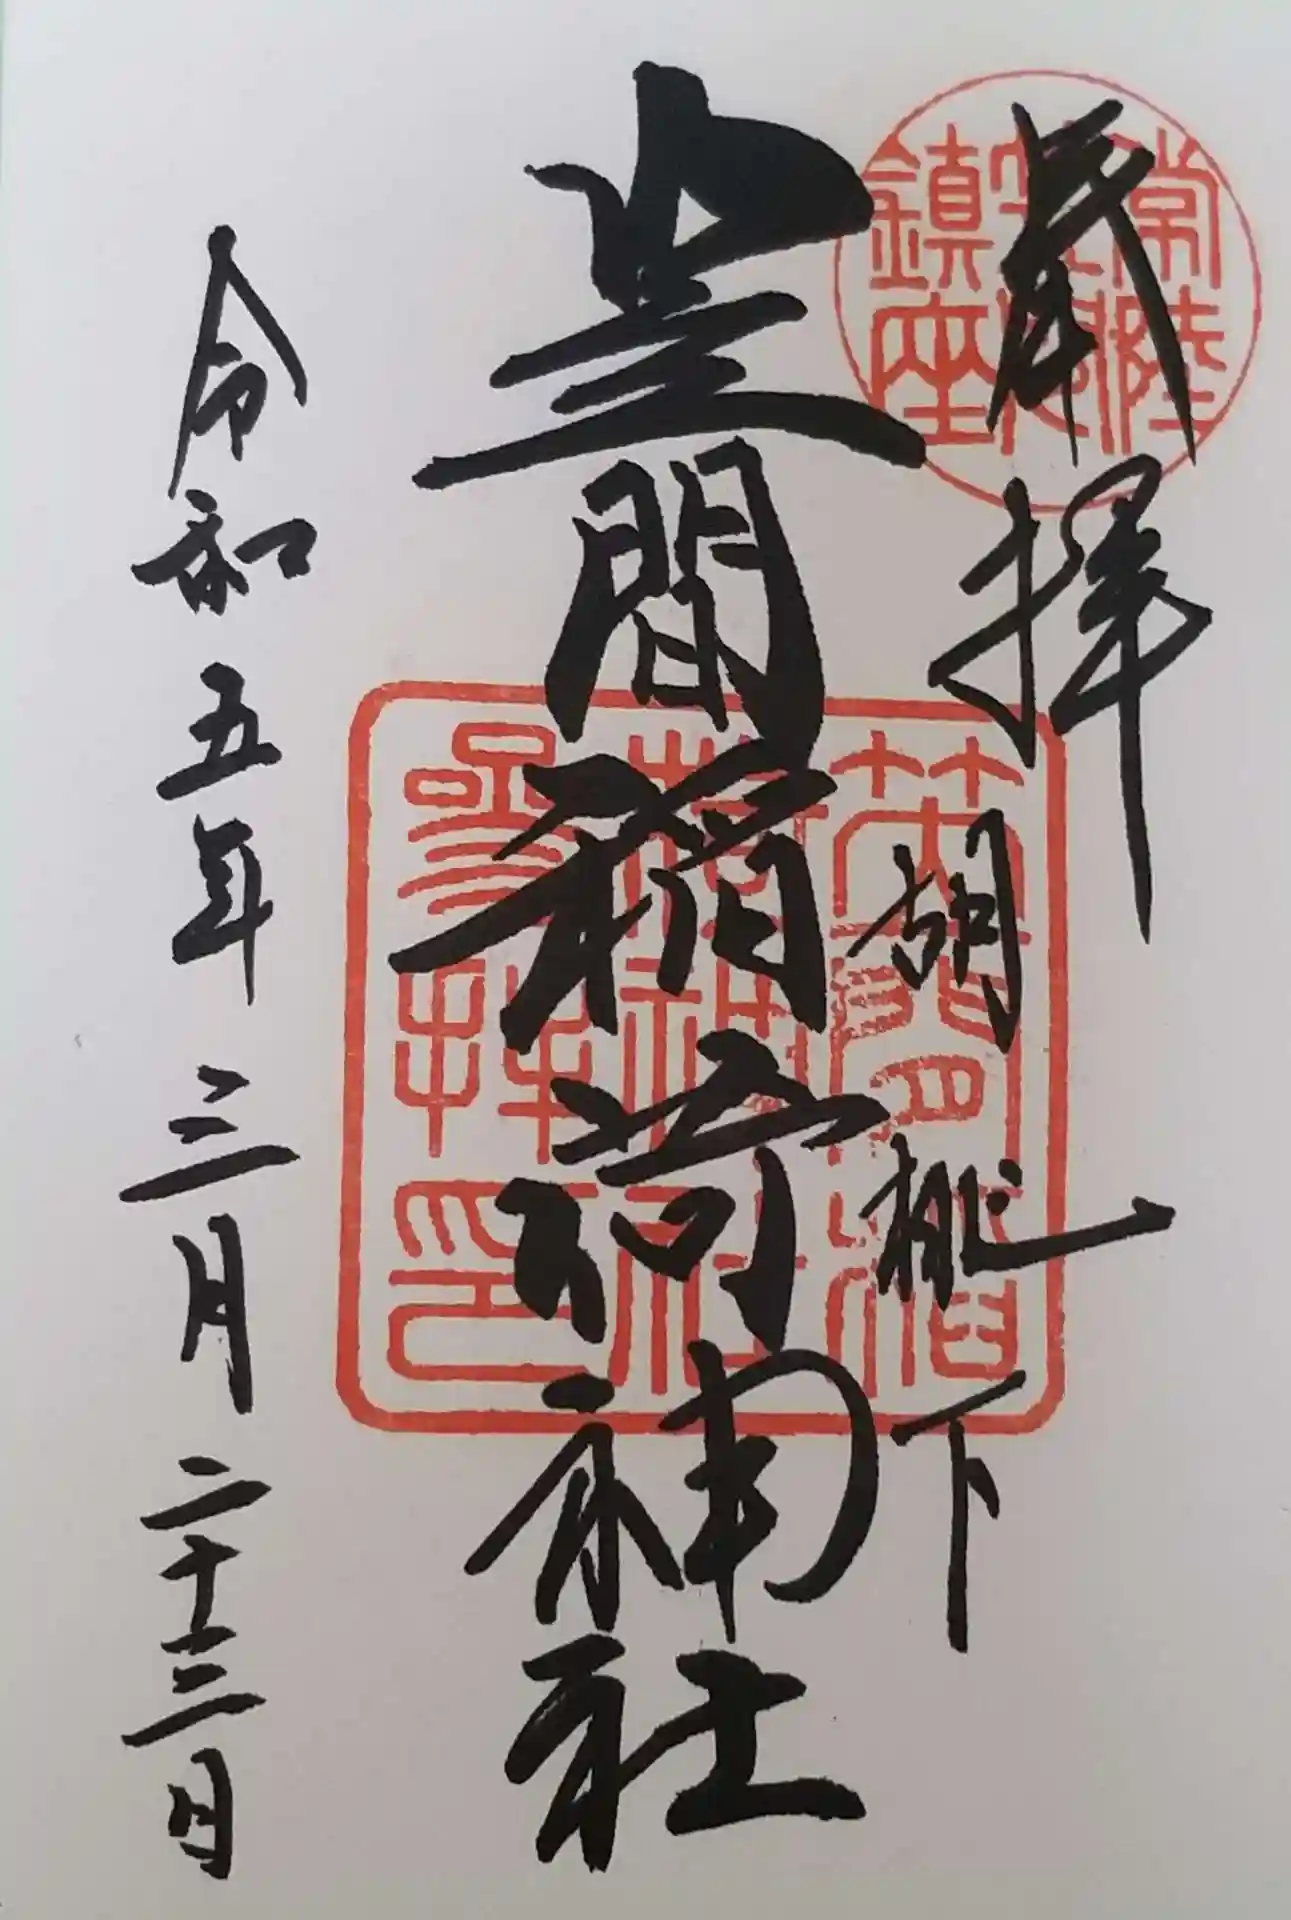 奉拝
胡桃下
笠間稲荷神社
令和五年三月二十三日
常陸
鎮座
笠間稲
荷神社
參拝印